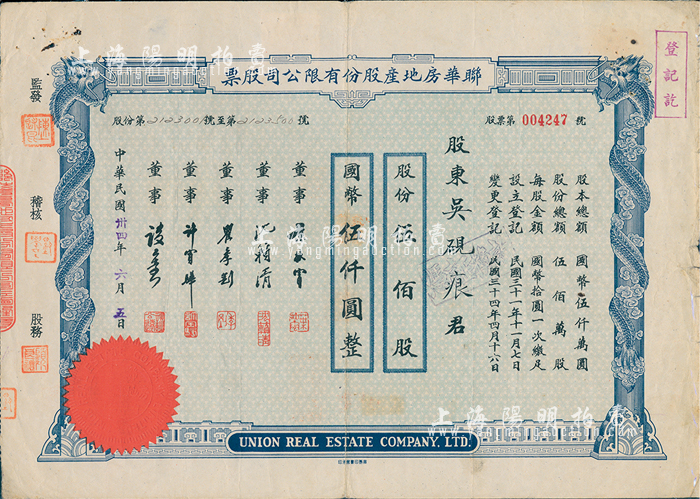 聯華房地產股份有限公司股票
登記訖
股票第 004247 號
股份第2123001號至第2123500號
股本總額 國幣伍仟萬圓
股份總額 伍佰萬股
每股金額 國幣拾圓一次繳足
設立登記 民國三十一年十一月七日
變更登記 民國三十四年四月十六日
股東吳硯痕君
股份 伍佰股
國幣伍仟圓整
董事
董事
董事
董事
董事
中華民國卅四年六月五日
監發
稽核
股務
UNION REAL ESTATE COMPANY, LTD.
上海陽明拍賣
www.yangmingauction.com
上海陽明拍賣